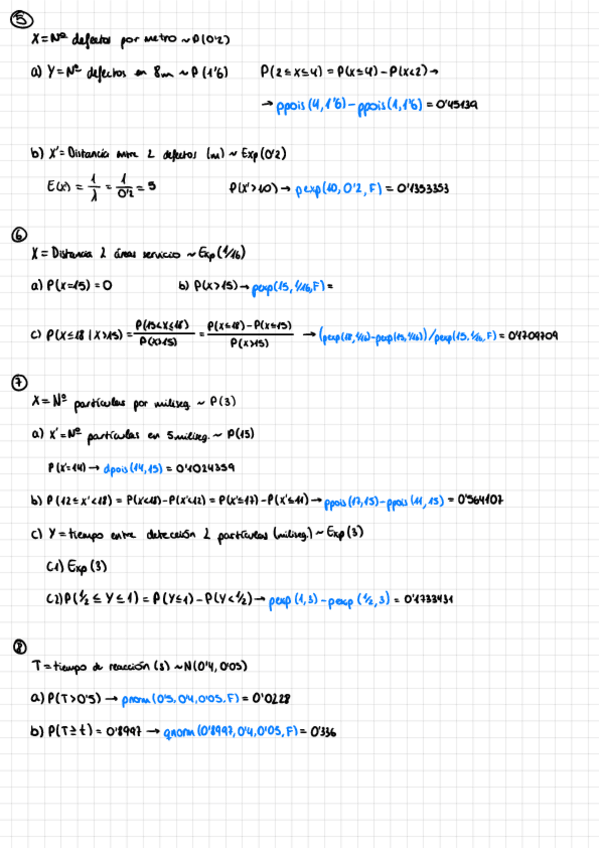 5
X = Nº defectos por metro ~ P(0'2)
a) Y = Nº defectos en 8m ~ P(1'6) P(2≤X≤4) = P(X≤4) - P(X<2) →
→ ppois(4,1'6) - ppois(1,1'6) = 0'45139
b) X' = Distancia entre 2 defectos (m) ~ Exp(0'2)
E(X) = 1/λ = 1/0'2 = 5 P(X'>10) → pexp(10,0'2,F) = 0'1353353
6
X = Distancia 2 áreas servicio ~ Exp(1/16)
a) P(X=15) = 0 b) P(X>15) → pexp(15,1/16,F) =
c) P(X≤18 | X>15) = P(15<X≤18)/P(X>15) = P(X≤18) - P(X≤15)/P(X>15) → (pexp(18,1/16) - pexp(15,1/16))/pexp(15,1/16,F) = 0'1709709
7
X = Nº partículas por miliseg ~ P(3)
a) X' = Nº partículas en 5 miliseg. ~ P(15)
P(X'=14) → dpois(14,15) = 0'1024359
b) P(12≤X'<18) = P(X'<18) - P(X'<12) = P(X'≤17) - P(X'≤11) → ppois(17,15) - ppois(11,15) = 0'564107
c) Y = tiempo entre detección 2 partículas (miliseg.) ~ Exp(3)
C1) Exp(3)
C2) P(1/2 ≤ Y ≤ 1) = P(Y≤1) - P(Y<1/2) → pexp(1,3) - pexp(1/2,3) = 0'1733431
8
T = tiempo de reacción (s) ~ N(0'4, 0'05)
a) P(T>0'5) → pnorm(0'5, 0'4, 0'05, F) = 0'0228
b) P(T≥t) = 0'8997 → qnorm(0'8997, 0'4, 0'05, F) = 0'336